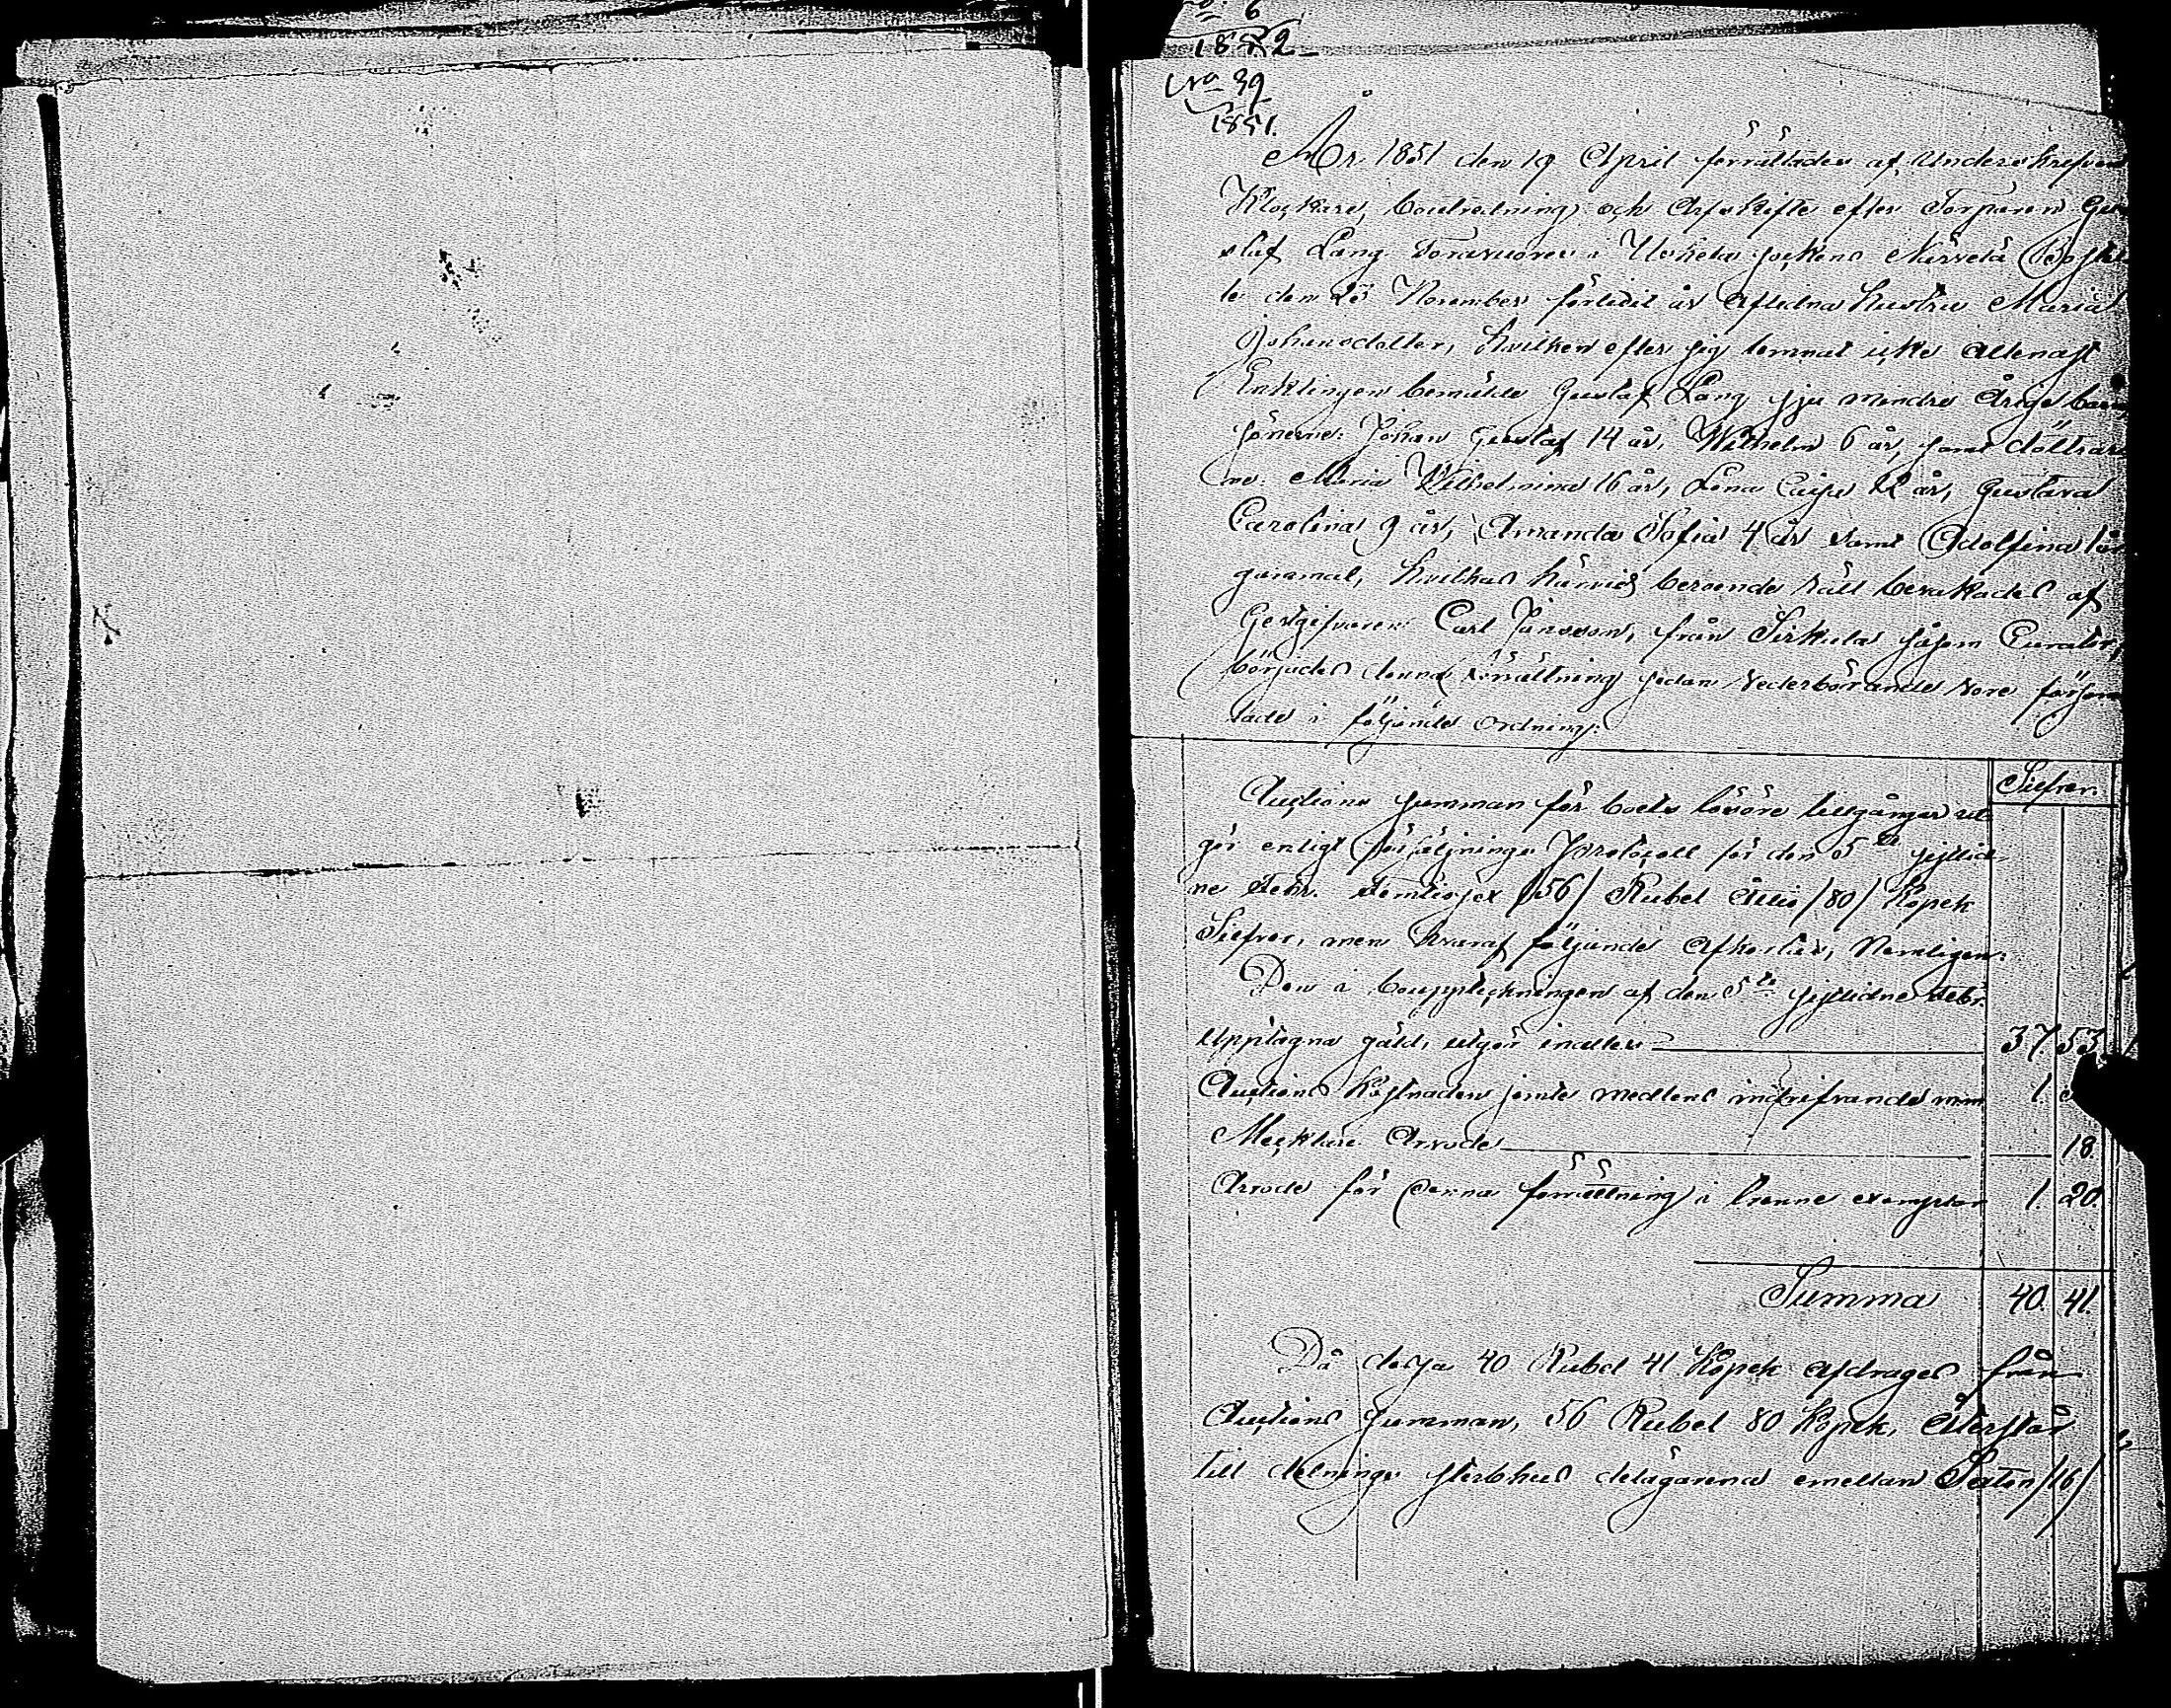 6
1852
No 39
1851.
År 1851 den 19 April förrättades af Underskrefven
Klockare, boutredning och Arfskifte efter Torparen Gu
staf Lång i Uskela sockens
le den 23 November förledit år Afledna hustru Maria
Johansdotter, hvilken efter sig lemnat icke allenast
Enklingen bemälde Gustaf Lång sju mindre Årige barn
sönerne: Johan Gustaf 14 år, Wilhelm 6 år, samt döttrar
ne: Maria Wilhelmina 16 år, Lena Caisa 12 år, Gustava
Carolina 9 år, Amanda Sofia 4 år samt Adolfina 1 år
gammal, hvilkas härvid beroende rätt bevakades af
Gestgifvaren Carl Jansson, från såsom Curator,
började denna förrättning sedan vederbörande vore försam
lade i följande ordning:
Silfver.
Auctions summan för boets lösöre tillgångar ut
gör enligt försäljnings Protocoll för den 5te sistlid
ne Febr. Femtiosex /56/ Rubel Åttio /80/ Kopek
Silfver, men hvaraf följande Afkortas, Nemligen:
Den i bouppteckningen af den 5te sistlidne Febr.
Upptagna gäld, utgör inalles 37. 53
Auctions Kostnaden jemte medlens indrifvande 1.
Mecklare Arvode 18.
Arvode för denna förrättning i trenne exemplar 1. 20.
Summa 40. 41.
Då dessa 40 Rubel 41 Kopek afdrages från
Auctions summan, 56 Rubel 80 Kopek, Återstår
till delnings sterbhus delägarena emellan Sexton /16/